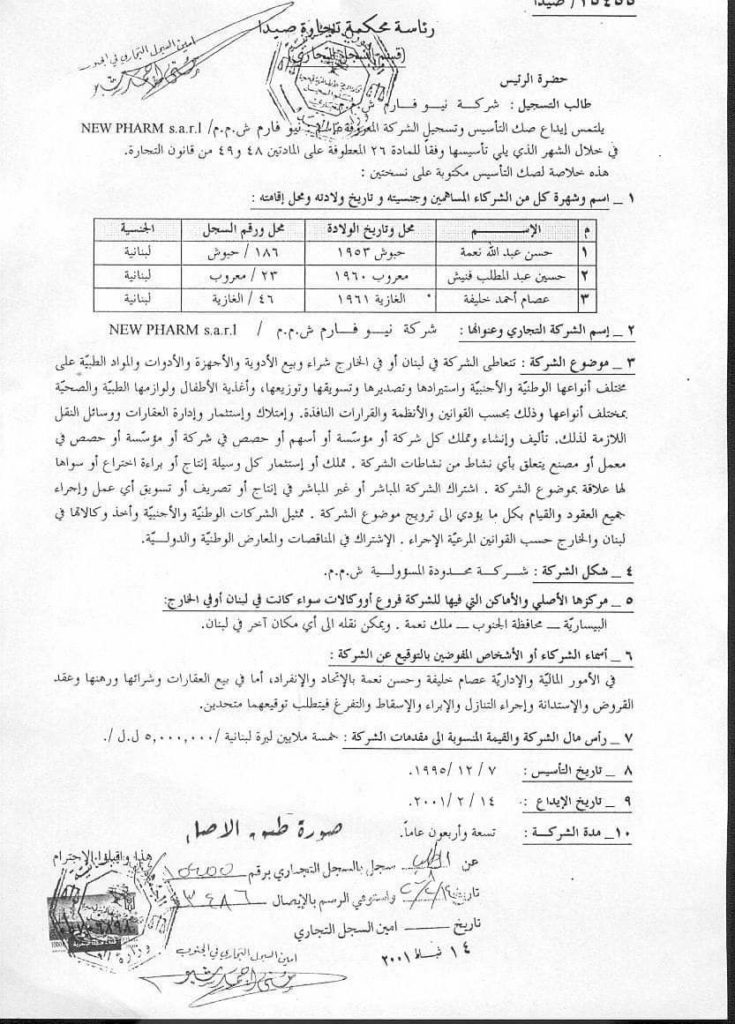 ١٥٤٥٥/ صيدا
رئاسة محكمة تجارة صيدا
(قسم السجل التجاري)
امين السجل التجاري في الجنوب
حضرة الرئيس
طالب التسجيل : شركة نيو فارم ش.م.م.
يلتمس إيداع صك التأسيس وتسجيل الشركة المعروفة باسم نيو فارم ش.م.م/ NEW PHARM s.a.r.l
في خلال الشهر الذي يلي تأسيسها وفقاً للمادة ٢٦ المعطوفة على المادتين ٤٨ و٤٩ من قانون التجارة.
هذه خلاصة لصك التأسيس مكتوبة على نسختين :
١ _ اسم وشهرة كل من الشركاء المساهمين وجنسيته و تاريخ ولادته ومحل إقامته :
م الإســـم محل وتاريخ الولادة محل ورقم السجل الجنسية
١ حسن عبد الله نعمة حبوش ١٩٥٣ ١٨٦ / حبوش لبنانية
٢ حسين عبد المطلب فنيش معروب ١٩٦٠ ٢٣ / معروب لبنانية
٣ عصام أحمد خليفة الغازية ١٩٦١ ٤٦ / الغازية لبنانية
٢ _ إسم الشركة التجاري وعنوانها : شركة نيو فارم ش.م.م / NEW PHARM s.a.r.l
٣ _ موضوع الشركة : تتعاطى الشركة في لبنان أو في الخارج شراء وبيع الأدوية والأجهزة والأدوات والمواد الطبيّة على
مختلف أنواعها الوطنيّة والأجنبيّة واستيرادها وتصديرها وتسويقها وتوزيعها، وأغذية الأطفال ولوازمها الطبيّة والصحيّة
بمختلف أنواعها وذلك بحسب القوانين والأنظمة والقرارات النافذة. وإمتلاك وإستثمار وإدارة العقارات ووسائل النقل
اللازمة لذلك. تأليف وإنشاء وتملك كل شركة أو مؤسّسة أو أسهم أو حصص في شركة أو مؤسّسة أو حصص في
معمل أو مصنع يتعلق بأي نشاط من نشاطات الشركة . تملك أو إستثمار كل وسيلة إنتاج أو براءة اختراع أو سواها
لها علاقة بموضوع الشركة . اشتراك الشركة المباشر أو غير المباشر في إنتاج أو تصريف أو تسويق أي عمل وإجراء
جميع العقود والقيام بكل ما يؤدي الى ترويج موضوع الشركة . تمثيل الشركات الوطنيّة والأجنبيّة وأخذ وكالاتها في
لبنان والخارج حسب القوانين المرعيّة الإجراء . الإشتراك في المناقصات والمعارض الوطنيّة والدوليّة.
٤ _ شكل الشركة : شركة محدودة المسؤولية ش.م.م.
٥ _ مركزها الأصلي والأماكن التي فيها للشركة فروع أووكالات سواء كانت في لبنان أوفي الخارج:
البيساريّة _ محافظة الجنوب _ ملك نعمة . ويمكن نقله الى أي مكان آخر في لبنان.
٦ _ أسماء الشركاء أو الأشخاص المفوضين بالتوقيع عن الشركة :
في الأمور الماليّة والإداريّة عصام خليفة وحسن نعمة بالإتحاد والإنفراد، أما في بيع العقارات وشرائها ورهنها وعقد
القروض والإستدانة وإجراء التنازل والإبراء والإسقاط والتفرغ فيتطلب توقيعهما متحدين.
٧ _ رأس مال الشركة والقيمة المنسوبة الى مقدمات الشركة : خمسة ملايين ليرة لبنانية /٥,٠٠٠,٠٠٠ ل.ل./
٨ _ تاريخ التأسيس : ٧ / ١٢ /١٩٩٥.
٩ _ تاريخ الإيداع : ١٤ /٢ /٢٠٠١.
١٠_ مدة الشركة : تسعة وأربعون عاماً.
صورة طبق الاصل
هذا واقبلوا الإحترام
عن الطلب سجل بالسجل التجاري برقم ١٥٤٥٥
تاريخ واستوفي الرسم بالإيصال ٣٤٨٦
تاريخ ــــ امين السجل التجاري
١٤ شباط ٢٠٠١
امين السجل التجاري في الجنوب